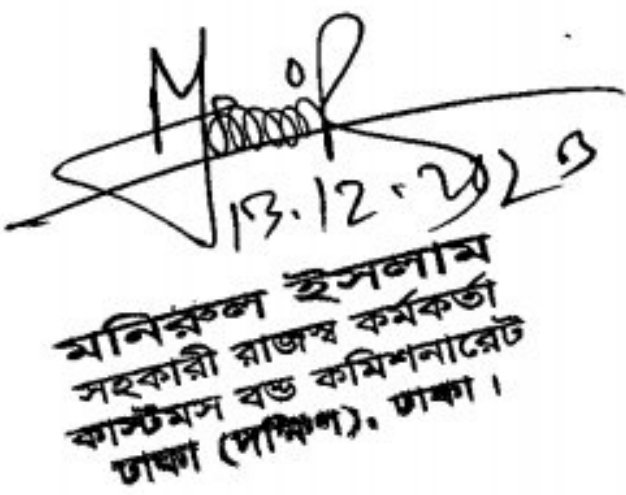 13.12.2023
মনিরুল ইসলাম
সহকারী রাজস্ব কর্মকর্তা
কাস্টমস বন্ড কমিশনারেট
ঢাকা (দক্ষিণ), ঢাকা।